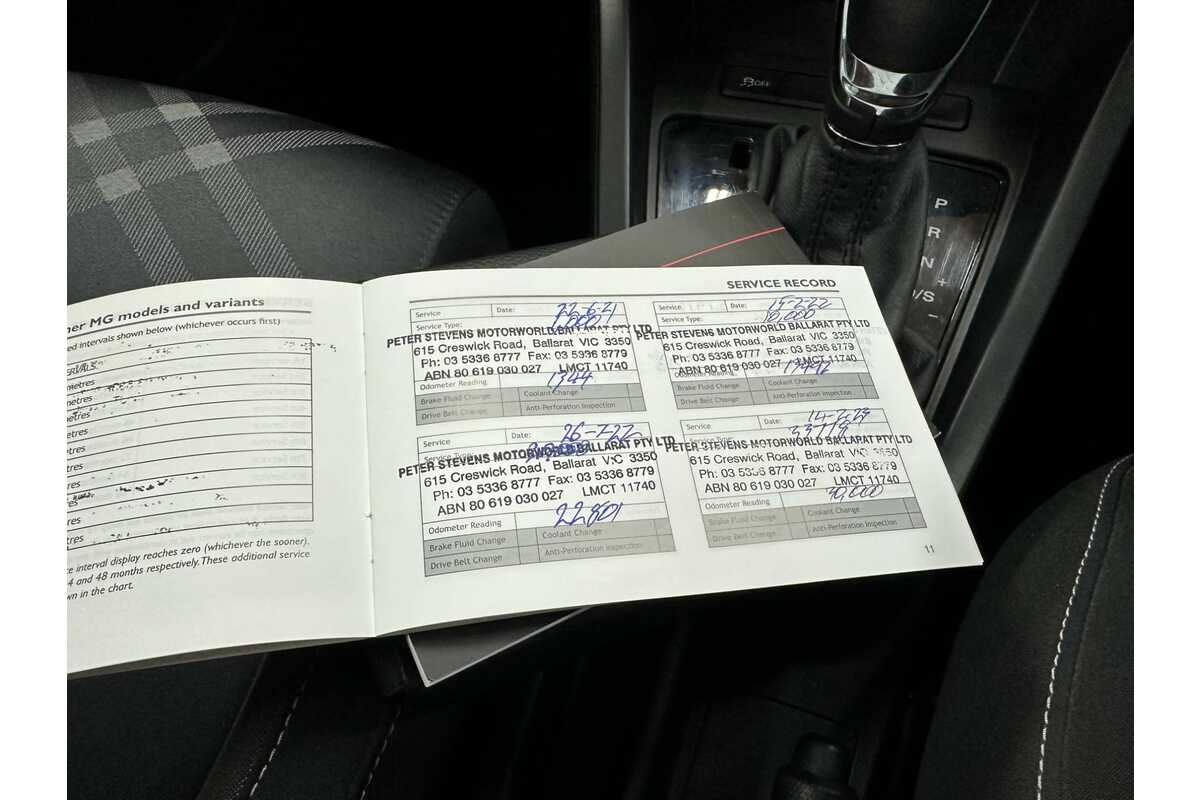 OFF
P
R
N
+
D/S
-
her MG models and variants
ed intervals shown below (whichever occurs first)
ERVALS
metres
metres
metres
etres
etres
etres
etres
res
res
res
ce interval display reaches zero (whichever the sooner).
4 and 48 months respectively. These additional service
wn in the chart.
SERVICE RECORD
Service Date: 22-6-21
Service Type: 1000
PETER STEVENS MOTORWORLD BALLARAT PTY LTD
615 Creswick Road, Ballarat VIC 3350
Ph: 03 5336 8777 Fax: 03 5336 8779
ABN 80 619 030 027 LMCT 11740
Odometer Reading 1344
Brake Fluid Change Coolant Change
Drive Belt Change Anti-Perforation Inspection
Service Date: 15-2-22
Service Type: 10,000
PETER STEVENS MOTORWORLD BALLARAT PTY LTD
615 Creswick Road, Ballarat VIC 3350
Ph: 03 5336 8777 Fax: 03 5336 8779
ABN 80 619 030 027 LMCT 11740
Odometer Reading
Brake Fluid Change Coolant Change
Drive Belt Change Anti-Perforation Inspection
Service Date: 26-7-22
Service Type:
PETER STEVENS MOTORWORLD BALLARAT PTY LTD
615 Creswick Road, Ballarat VIC 3350
Ph: 03 5336 8777 Fax: 03 5336 8779
ABN 80 619 030 027 LMCT 11740
Odometer Reading 22801
Brake Fluid Change Coolant Change
Drive Belt Change Anti-Perforation Inspection
Service Date: 14-2-23
Service Type: 33719
PETER STEVENS MOTORWORLD BALLARAT PTY LTD
615 Creswick Road, Ballarat VIC 3350
Ph: 03 5336 8777 Fax: 03 5336 8779
ABN 80 619 030 027 LMCT 11740
Odometer Reading 30,000
Brake Fluid Change Coolant Change
Drive Belt Change Anti-Perforation Inspection
11